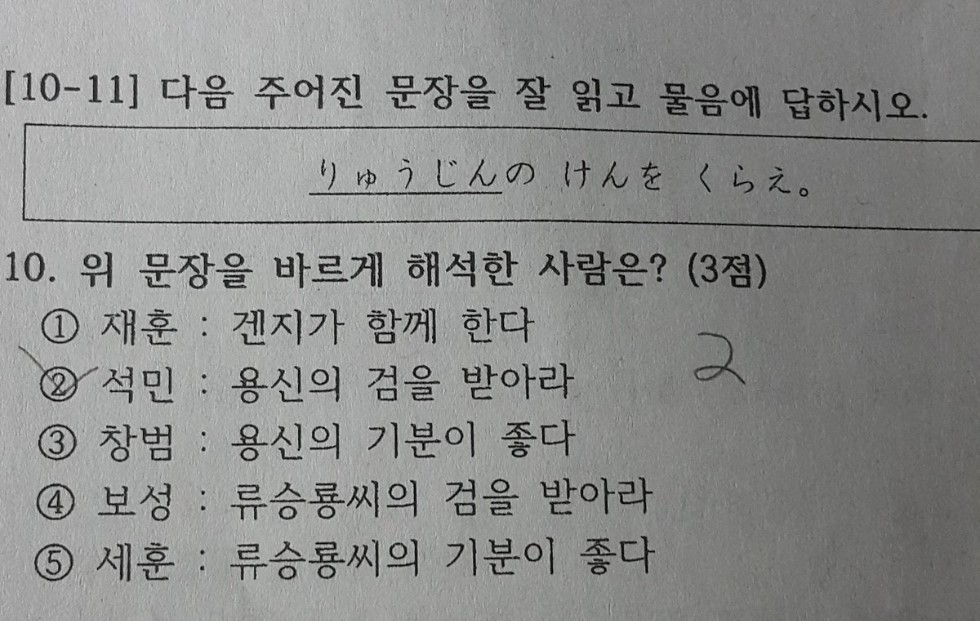 [10-11] 다음 주어진 문장을 잘 읽고 물음에 답하시오.
りゅうじんの けんを くらえ。
10. 위 문장을 바르게 해석한 사람은? (3점)
① 재훈 : 겐지가 함께 한다
② 석민 : 용신의 검을 받아라
2
③ 창범 : 용신의 기분이 좋다
④ 보성 : 류승룡씨의 검을 받아라
⑤ 세훈 : 류승룡씨의 기분이 좋다